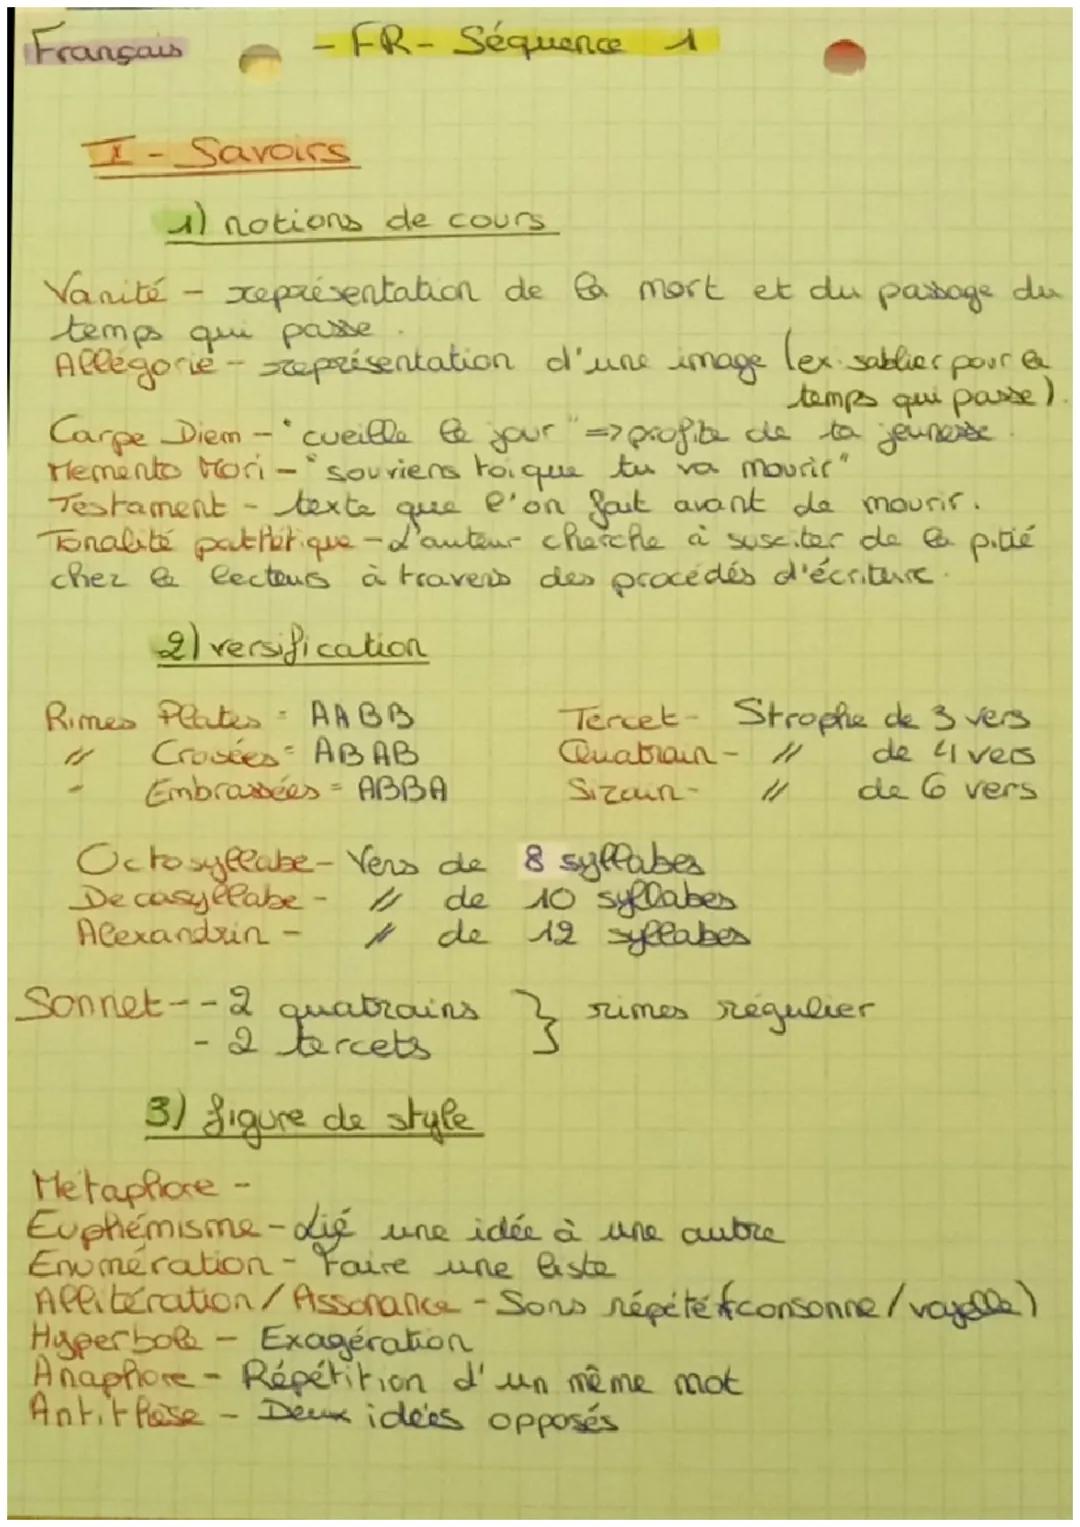 Français - FR - Séquence 1
I - Savoirs
1) notions de cours
Vanité - représentation de la mort et du passage du
temps qui passe.
Allégorie - représentation d'une image (ex. sablier pour le
temps qui passe).
Carpe Diem - "cueille le jour" => profite de ta jeunesse.
Memento Mori - "souviens toi que tu va mourir"
Testament - texte que l'on fait avant de mourir.
Tonalité pathétique - L'auteur cherche à susciter de la pitié
chez le lecteurs à travers des procédés d'écriture.
2) versification
Rimes Plates = AABB
" Croisées = ABAB
- Embrassées = ABBA
Tercet - Strophe de 3 vers
Quatrain - " de 4 vers
Sizain - " de 6 vers
Octosyllabe - Vers de 8 syllabes
Decasyllabe - " de 10 syllabes
Alexandrin - " de 12 syllabes
Sonnet - - 2 quatrains } rimes régulier
- 2 tercets
3) figure de style
Métaphore -
Euphémisme - Lié une idée à une autre
Enumération - Faire une liste
Allitération / Assonance - Sons répété (consonne / voyelle)
Hyperbole - Exagération
Anaphore - Répétition d'un même mot
Antithèse - Deux idées opposés